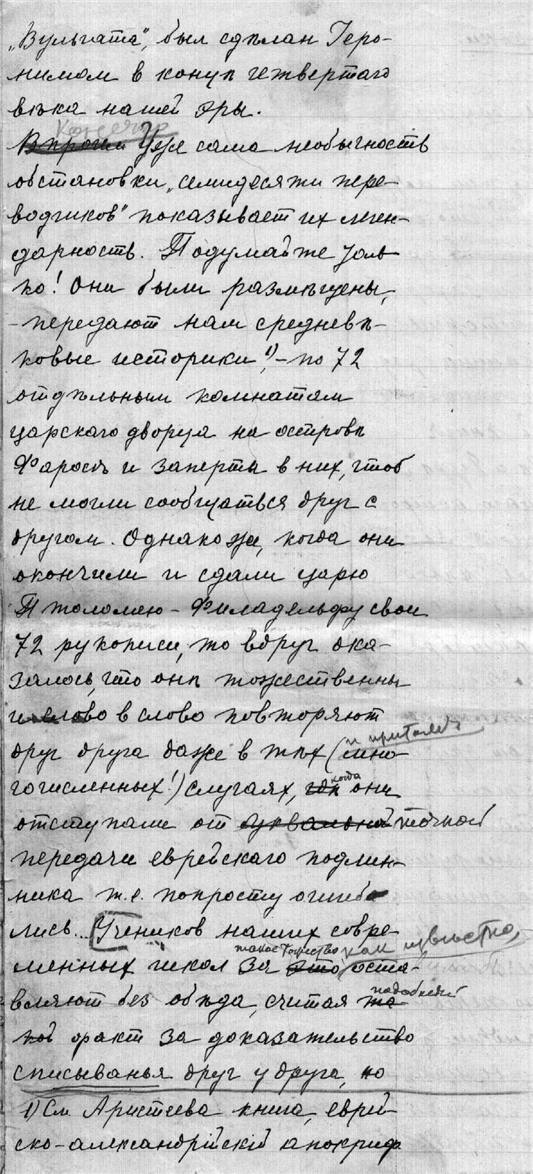 „Вульгата", был сдѣлан Іеро-
нимом в концѣ четвертаго
вѣка нашей эры.
Конечно
Впрочем Уже сама необычность
обстановки „семидесяти пере-
водчиков" показывает их леген-
дарность. Подумайте толь-
ко! Они были размѣщены,
-передают нам средневѣ-
ковые историки 1),-по 72
отдѣльным комнатам
царскаго дворца на островѣ
Фаросѣ и заперты в них, чтоб
не могли сообщаться друг с
другом. Однако же, когда они
окончили и сдали царю
Птоломею-Филадельфу свои
72 рукописи, то вдруг ока-
залось, что онѣ тожественны
и слово в слово повторяют
и притом
друг друга даже в тѣх (мно-
гочисленных!) случаях, гдѣ они
когда
отступали от буквальной точной
передачи еврейскаго подлин-
ника т.е. попросту ошиба-
лись... [Учеников наших совре-
такое тожество как извѣстно,
менных школ за это оста-
вляют без обѣда, считая та-
подобный
кой факт за доказательство
списыванья друг у друга, но
1) См Аристеева книга, еврей-
ско-александрійскій апокриф